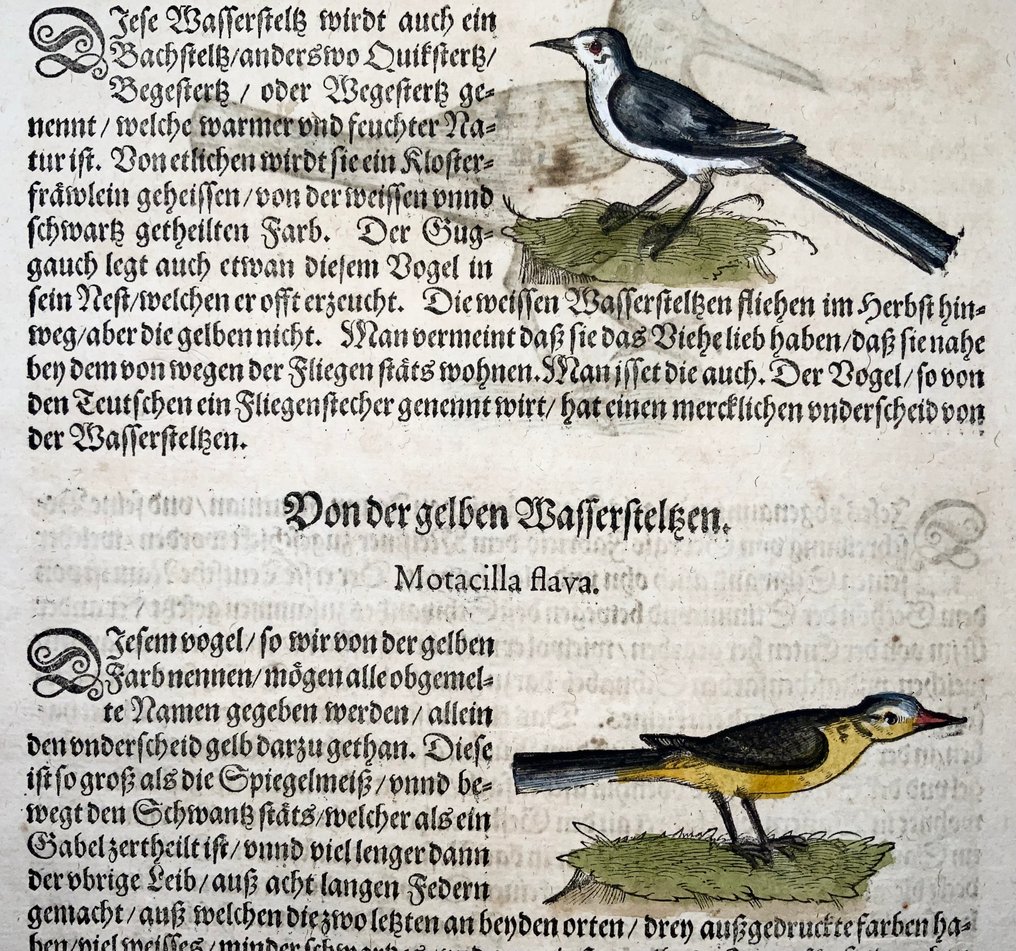 DJese Wassersteltz wirdt auch ein
Bachsteltz/anderswo Quikstertz/
Begestertz / oder Wegestertz ge-
nennt / welche warmer vnd feuchter Na-
tur ist. Von etlichen wirdt sie ein Kloster-
fräwlein geheissen/von der weissen vnnd
schwartz getheilten Farb. Der Gug-
gauch legt auch etwan diesem Vogel in
sein Nest/welchen er offt erzeucht. Die weissen Wassersteltzen fliehen im Herbst hin-
weg/aber die gelben nicht. Man vermeint daß sie das Viehe lieb haben/daß sie nahe
bey dem von wegen der Fliegen stäts wohnen. Man isset die auch. Der Vogel/ so von
den Teutschen ein Fliegenstecher genennt wirt/ hat einen mercklichen vnderscheid von
der Wassersteltzen.
Von der gelben Wassersteltzen.
Motacilla flava.
DJesem vogel/ so wir von der gelben
Farb nennen/ mögen alle obgemel-
te Namen gegeben werden/ allein
den vnderscheid gelb darzu gethan. Diese
ist so groß als die Spiegelmeiß/ vnnd be-
wegt den Schwantz stäts/welcher als ein
Gabel zertheilt ist/ vnnd viel lenger dann
der vbrige Leib/ auß acht langen Federn
gemacht/ auß welchen die zwo letzten an beyden orten/ drey außgedruckte farben ha-
ben/viel weisses/ minder schwartzes